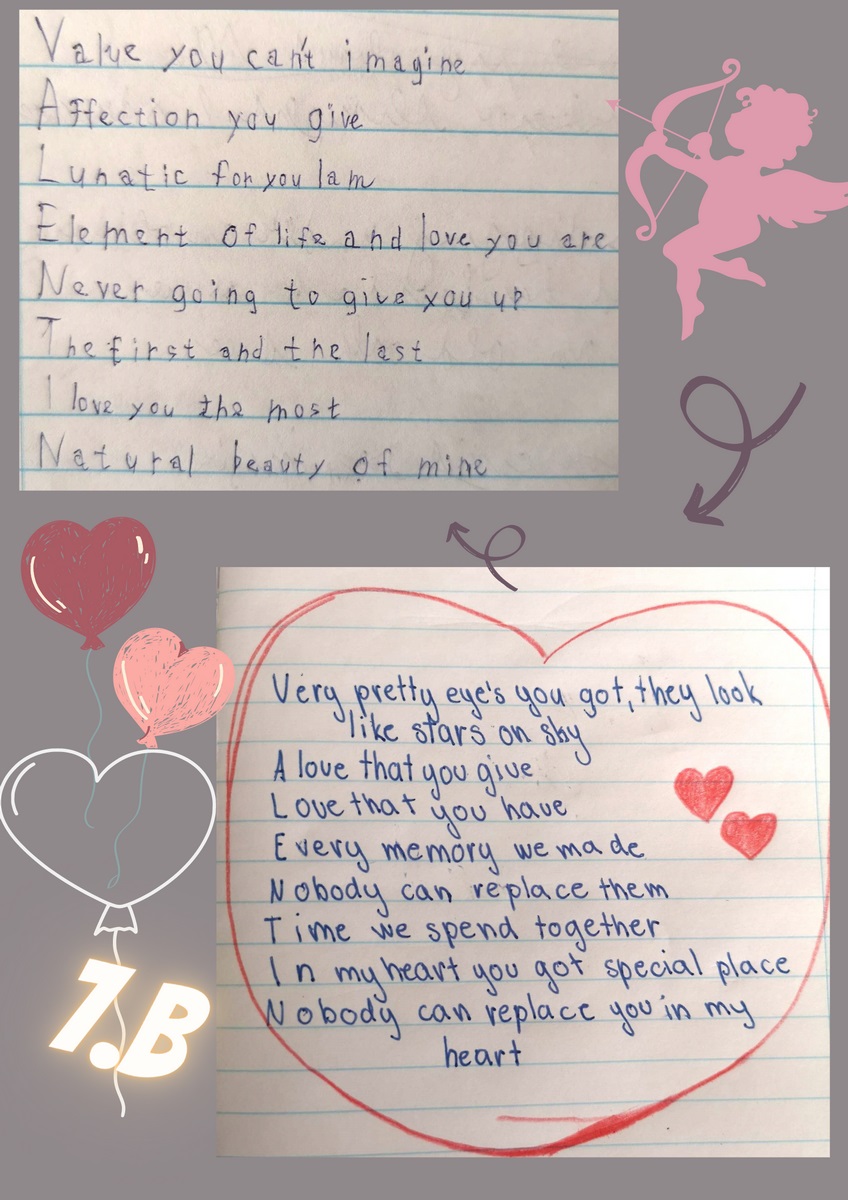 Value you can't imagine
Affection you give
Lunatic for you I am
Element of life and love you are
Never going to give you up
The first and the last
I love you the most
Natural beauty of mine
Very pretty eye's you got, they look
like stars on sky
A love that you give
Love that you have
Every memory we made
Nobody can replace them
Time we spend together
In my heart you got special place
Nobody can replace you in my
heart
7.B